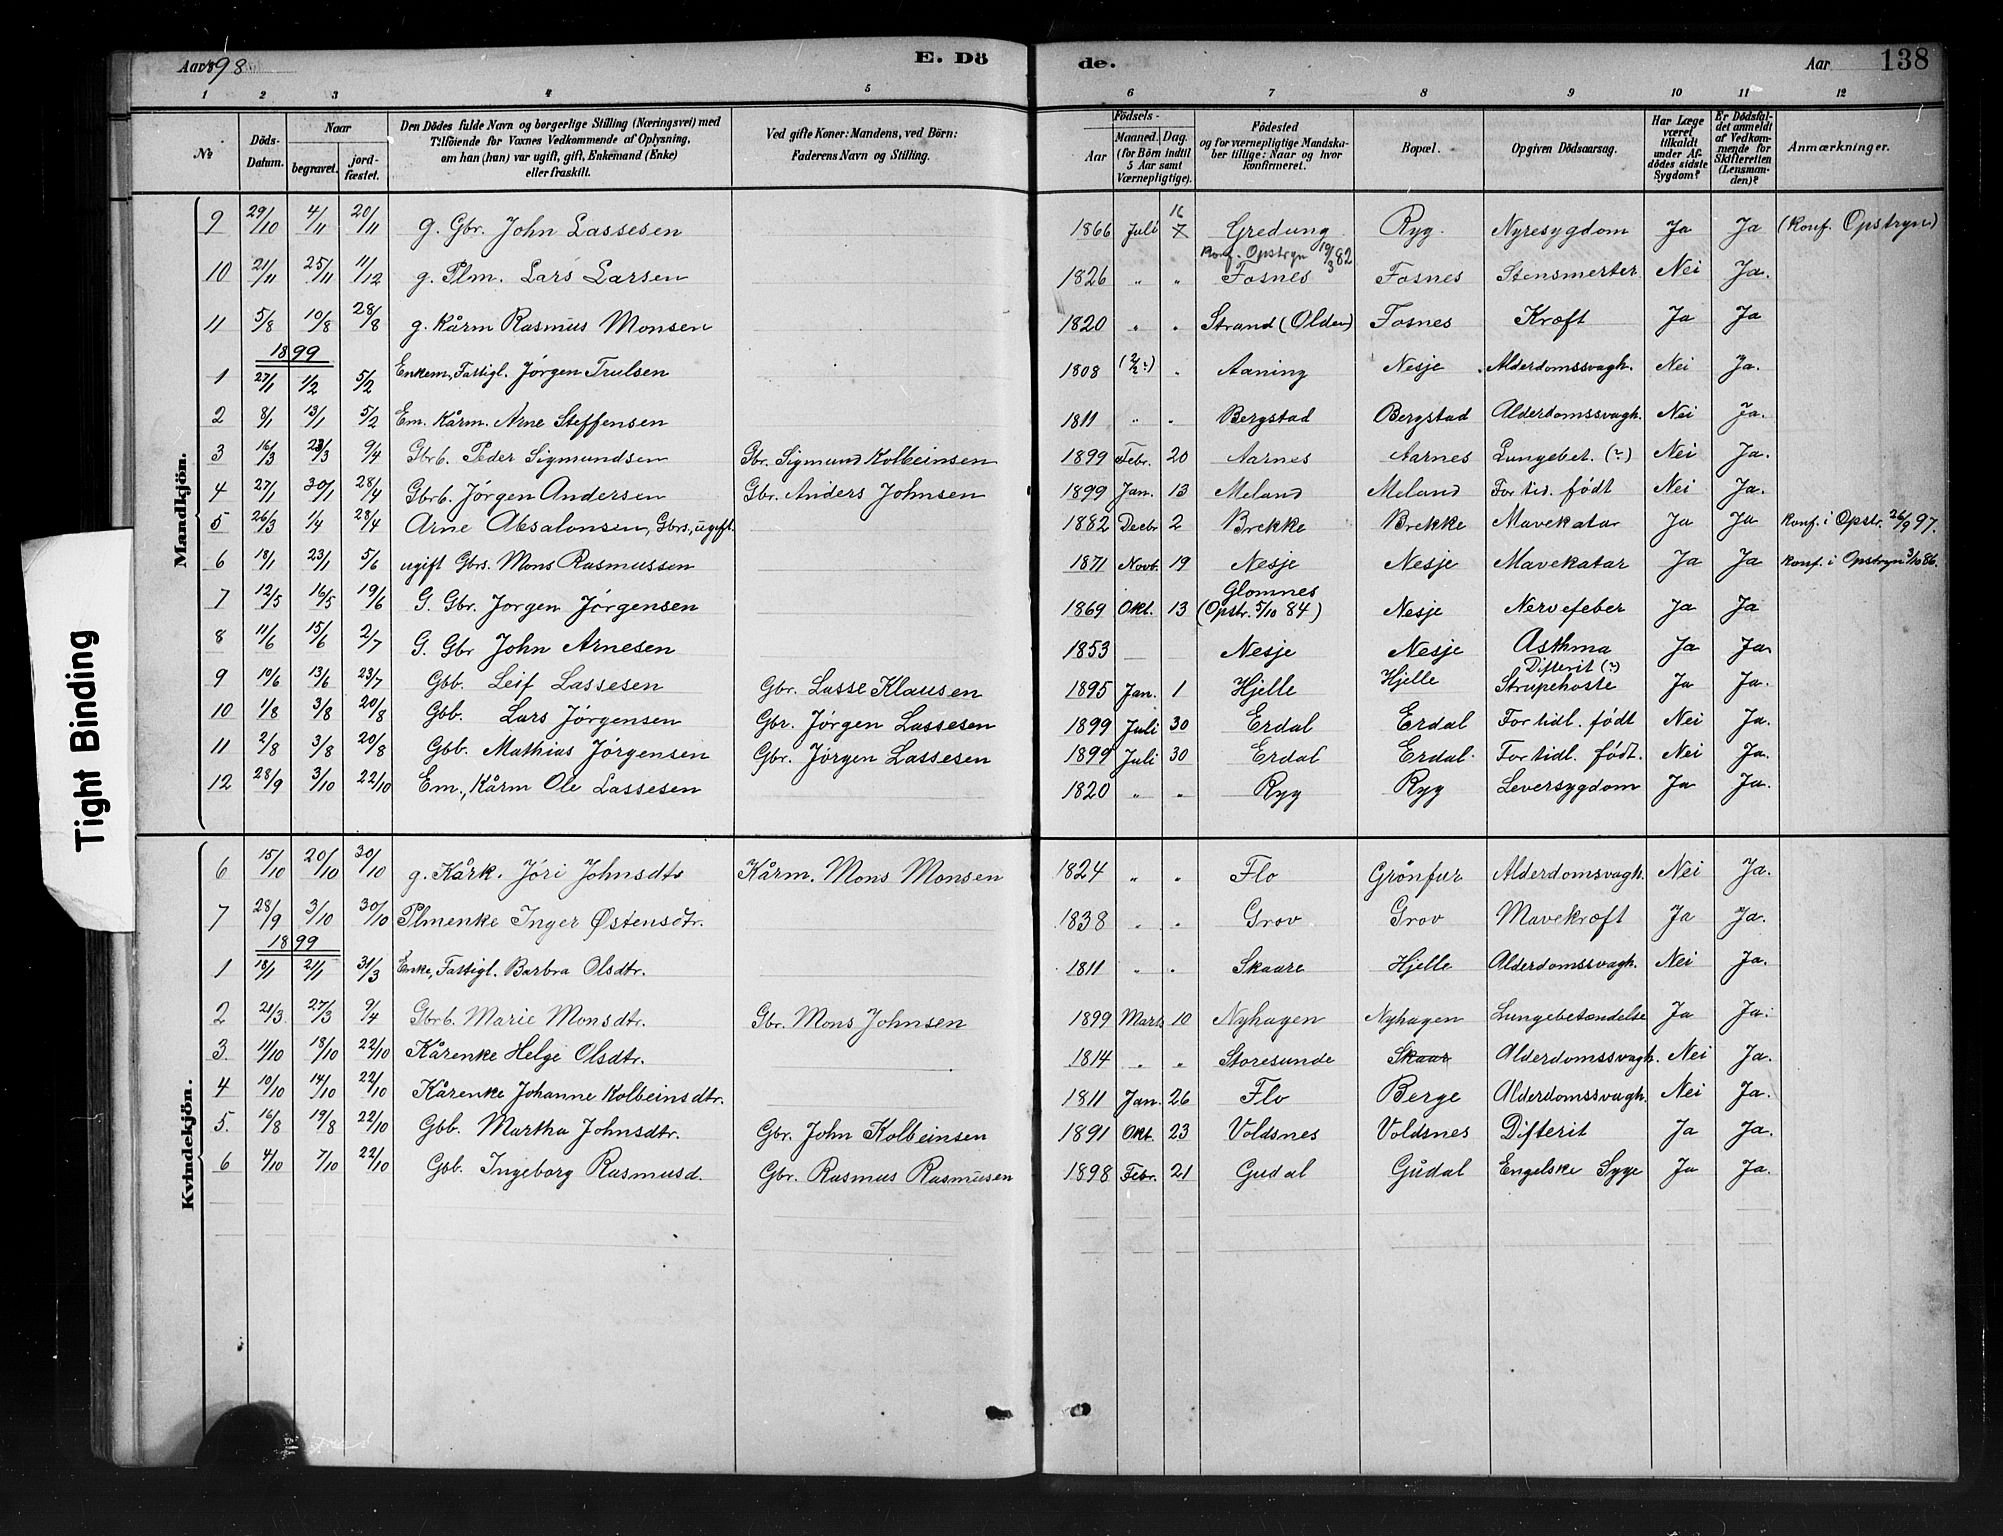 Aar 1898
E. Dö
de.
Aar
138
1 2 3 4 5 6 7 8 9 10 11 12
No
Döds-Datum.
Naar
begravet.
jord-fæstet.
Den Dödes fulde Navn og borgerlige Stilling (Næringsvei) med
Tilföiende for Voxnes Vedkommende af Oplysning,
om han (hun) var ugift, gift, Enkemand (Enke)
eller fraskilt.
Ved gifte Koner: Mandens, ved Börn:
Faderens Navn og Stilling.
Födsels-
Aar
Maaned. Dag.
(for Börn indtil
5 Aar samt
Værnepligtige).
Födested
og for værnepligtige Mandska-
ber tillige: Naar og hvor
konfirmeret.
Bopæl.
Opgiven Dödsaarsag.
Har Læge
været
tilkaldt
under Af-
dödes sidste
Sygdom?
Er Dödsfal-
det anmeldt
af Vedkom-
mende for
Skifteretten
(Lensman-
den)?
Anmærkninger.
Mandkjön.
9 29/10 4/11 20/11 g. Gbr. John Lassesen 1866 Juli 16 7 Gredung Ryg Nyresygdom Ja Ja (Konf. Opstryn)
Konf. Opstryn 19/3 82
10 21/11 25/11 11/12 g. Plm. Lars Larsen 1826 " " Fosnes Fosnes Stensmerter Nei Ja.
11 5/8 10/8 28/8 g. Kårm Rasmus Monsen 1820 " " Strand (Olden) Fosnes Kræft Ja Ja
1899
1 27/1 1/2 5/2 Enkem, Fattigl. Jørgen Trulsen 1808 (2/2?) " Aaning Nesje Alderdomssvagh. Nei Ja.
2 8/1 13/1 5/2 Em. Kårm. Arne Steffensen 1811 " " Bergstad Bergstad Alderdomssvagh. Nei Ja.
3 16/3 23/3 9/4 Gbrb. Peder Sigmundsen Gbr. Sigmund Kolbeinsen 1899 Febr. 20 Aarnes Aarnes Lungebet. (?) Nei Ja.
4 27/1 30/1 28/4 Gbrb. Jørgen Andersen Gbr. Anders Johnsen 1899 Jan. 13 Meland Meland For tid. født Nei Ja.
5 26/3 1/4 28/4 Arne Absalonsen, Gbrs., ugift. 1882 Decbr 2 Brekke Brekke Mavekatar Ja Ja Konf. i Opstr. 26/9 97.
6 18/1 23/1 5/6 ugift Gbrs. Mons Rasmussen 1871 Novb. 19 Nesje Nesje Mavekatar Ja Ja Konf. i Opstryn 3/10 86.
7 12/5 16/5 19/6 G. Gbr. Jorgen Jørgensen 1869 Okt. 13 Glomnes (Opstr. 5/10 84) Nesje Nervefeber Ja Ja
8 11/6 15/6 2/7 G. Gbr John Arnesen 1853 Nesje Nesje Asthma Ja Ja
9 10/6 13/6 23/7 Gbb. Leif Lassesen Gbr. Lasse Klausen 1895 Jan. 1 Hjelle Hjelle Difterit (?) Strupehoste Ja Ja.
10 1/8 3/8 20/8 Gbb. Lars Jørgensen Gbr. Jørgen Lassesen 1899 Juli 30 Erdal Erdal For tidl. født Nei Ja.
11 2/8 3/8 20/8 Gbb. Mathias Jørgensen Gbr. Jørgen Lassesen 1899 Juli 30 Erdal Erdal. For tidl. født. Nei Ja.
12 28/9 3/10 22/10 Em., Kårm Ole Lassesen 1820 " " Ryg Ryg Leversygdom Ja Ja.
Kvindekjön.
6 15/10 20/10 30/10 g. Kårk. Jóri Johnsdtr Kårm. Mons Monsen 1824 " " Flo Grönfur Alderdomsvagh. Nei Ja.
7 28/9 3/10 30/10 Plmenke Inger Østensdtr. 1838 " " Grov Grov Mavekræft Ja Ja.
1899
1 18/1 21/1 31/3 Enke, Fattigl. Barbra Olsdtr. 1811 " " Skaare Hjelle Alderdomssvagh. Nei Ja.
2 21/3 27/3 9/4 Gbrb. Marie Monsdtr. Gbr. Mons Johnsen 1899 Marts 10 Nyhagen Nyhagen Lungebetændelse Ja Ja.
3. 11/10 18/10 22/10 Kårenke Helge Olsdtr. 1814 " " Storesunde Skaar Alderdomssvagh. Nei Ja.
4 10/10 14/10 22/10 Kårenke Johanne Kolbeinsdtr. 1811 Jan. 26 Flo Berge Alderdomssvagh. Nei Ja.
5. 16/8 19/8 22/10 Gbb. Martha Johnsdtr. Gbr. John Kolbeinsen 1891 Okt. 23 Voldsnes Voldsnes Difterit Ja Ja.
6 4/10 7/10 22/10 Gbb. Ingeborg Rasmusd. Gbr. Rasmus Rasmusen 1898 Febr. 21 Gudal Gudal Engelske Syge Ja Ja.
Tight Binding